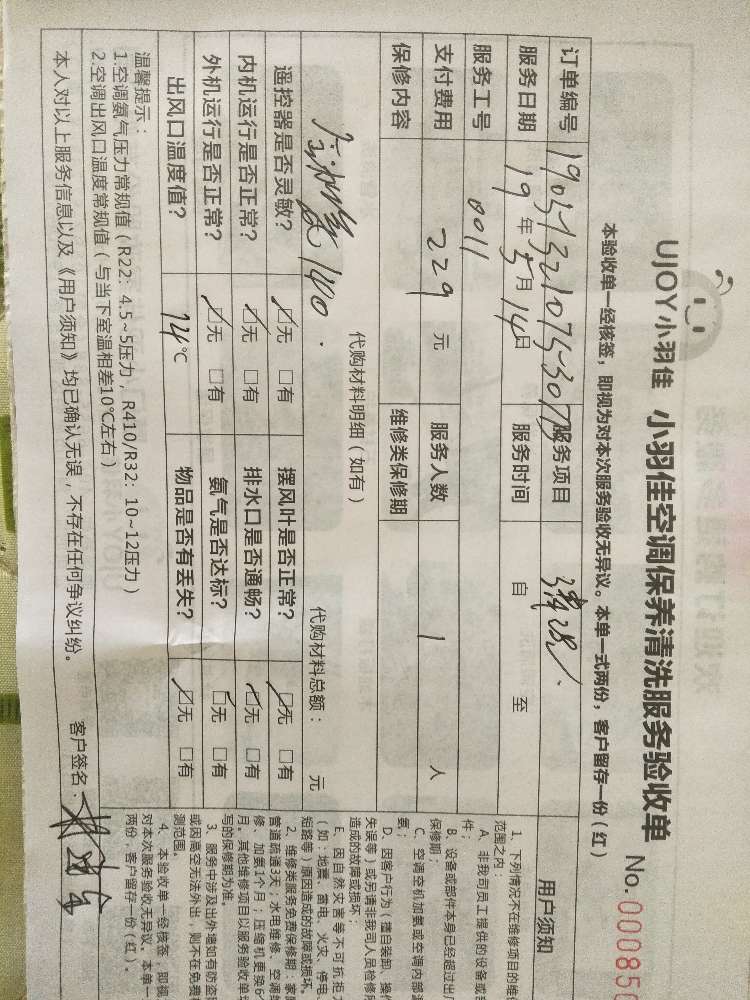 UJOY小羽佳 小羽佳空调保养清洗服务验收单
No. 000850
本验收单一经核签，即视为对本次服务验收无异议。本单一式两份，客户留存一份（红）
订单编号
服务项目
服务日期 19 年 5 月 14 日 服务时间 自 至
服务工号 0011
支付费用 229 元 服务人数 1 人
保修内容 维修类保修期
代购材料明细（如有） 代购材料总额： 元
140.
遥控器是否灵敏？ 无 有 摆风叶是否正常？ 无 有
内机运行是否正常？ 无 有 排水口是否通畅？ 无 有
外机运行是否正常？ 无 有 氨气是否达标？ 无 有
出风口温度值？ 14℃ 物品是否有丢失？ 无 有
温馨提示：
1.空调氨气压力常规值（R22：4.5~5压力，R410/R32：10~12压力）
2.空调出风口温度常规值（与当下室温相差10℃左右）
本人对以上服务信息以及《用户须知》均已确认无误，不存在任何争议纠纷。 客户签名：
用户须知
1、下列情况不在维修项目的维
范围之内：
A、非我司员工提供的设备或
件；
B、设备或部件本身已经超过出厂
保修期；
C、空调空机加氨或空调内部
氨；
D、因客户行为（擅自装卸、操作
失误等）或另请非我司人员检修
造成的故障或损坏；
E、因自然灾害等不可抗拒
（如：地震、雷电、火灾、停电、
短路等）原因造成的故障或损坏。
2、维修类服务免费保修期：家
管道疏通3天；水电维修、空调
修、加氨1个月；压缩机更换6个
月。其他维修项目以服务验收单
写的保修期为准。
3、服务中涉及出外墙如有防盗
或因高空无法外出，则不在免费
测范围。
4、本验收单一经核签，即视
对本次服务验收无异议。本单一
两份，客户留存一份（红）。